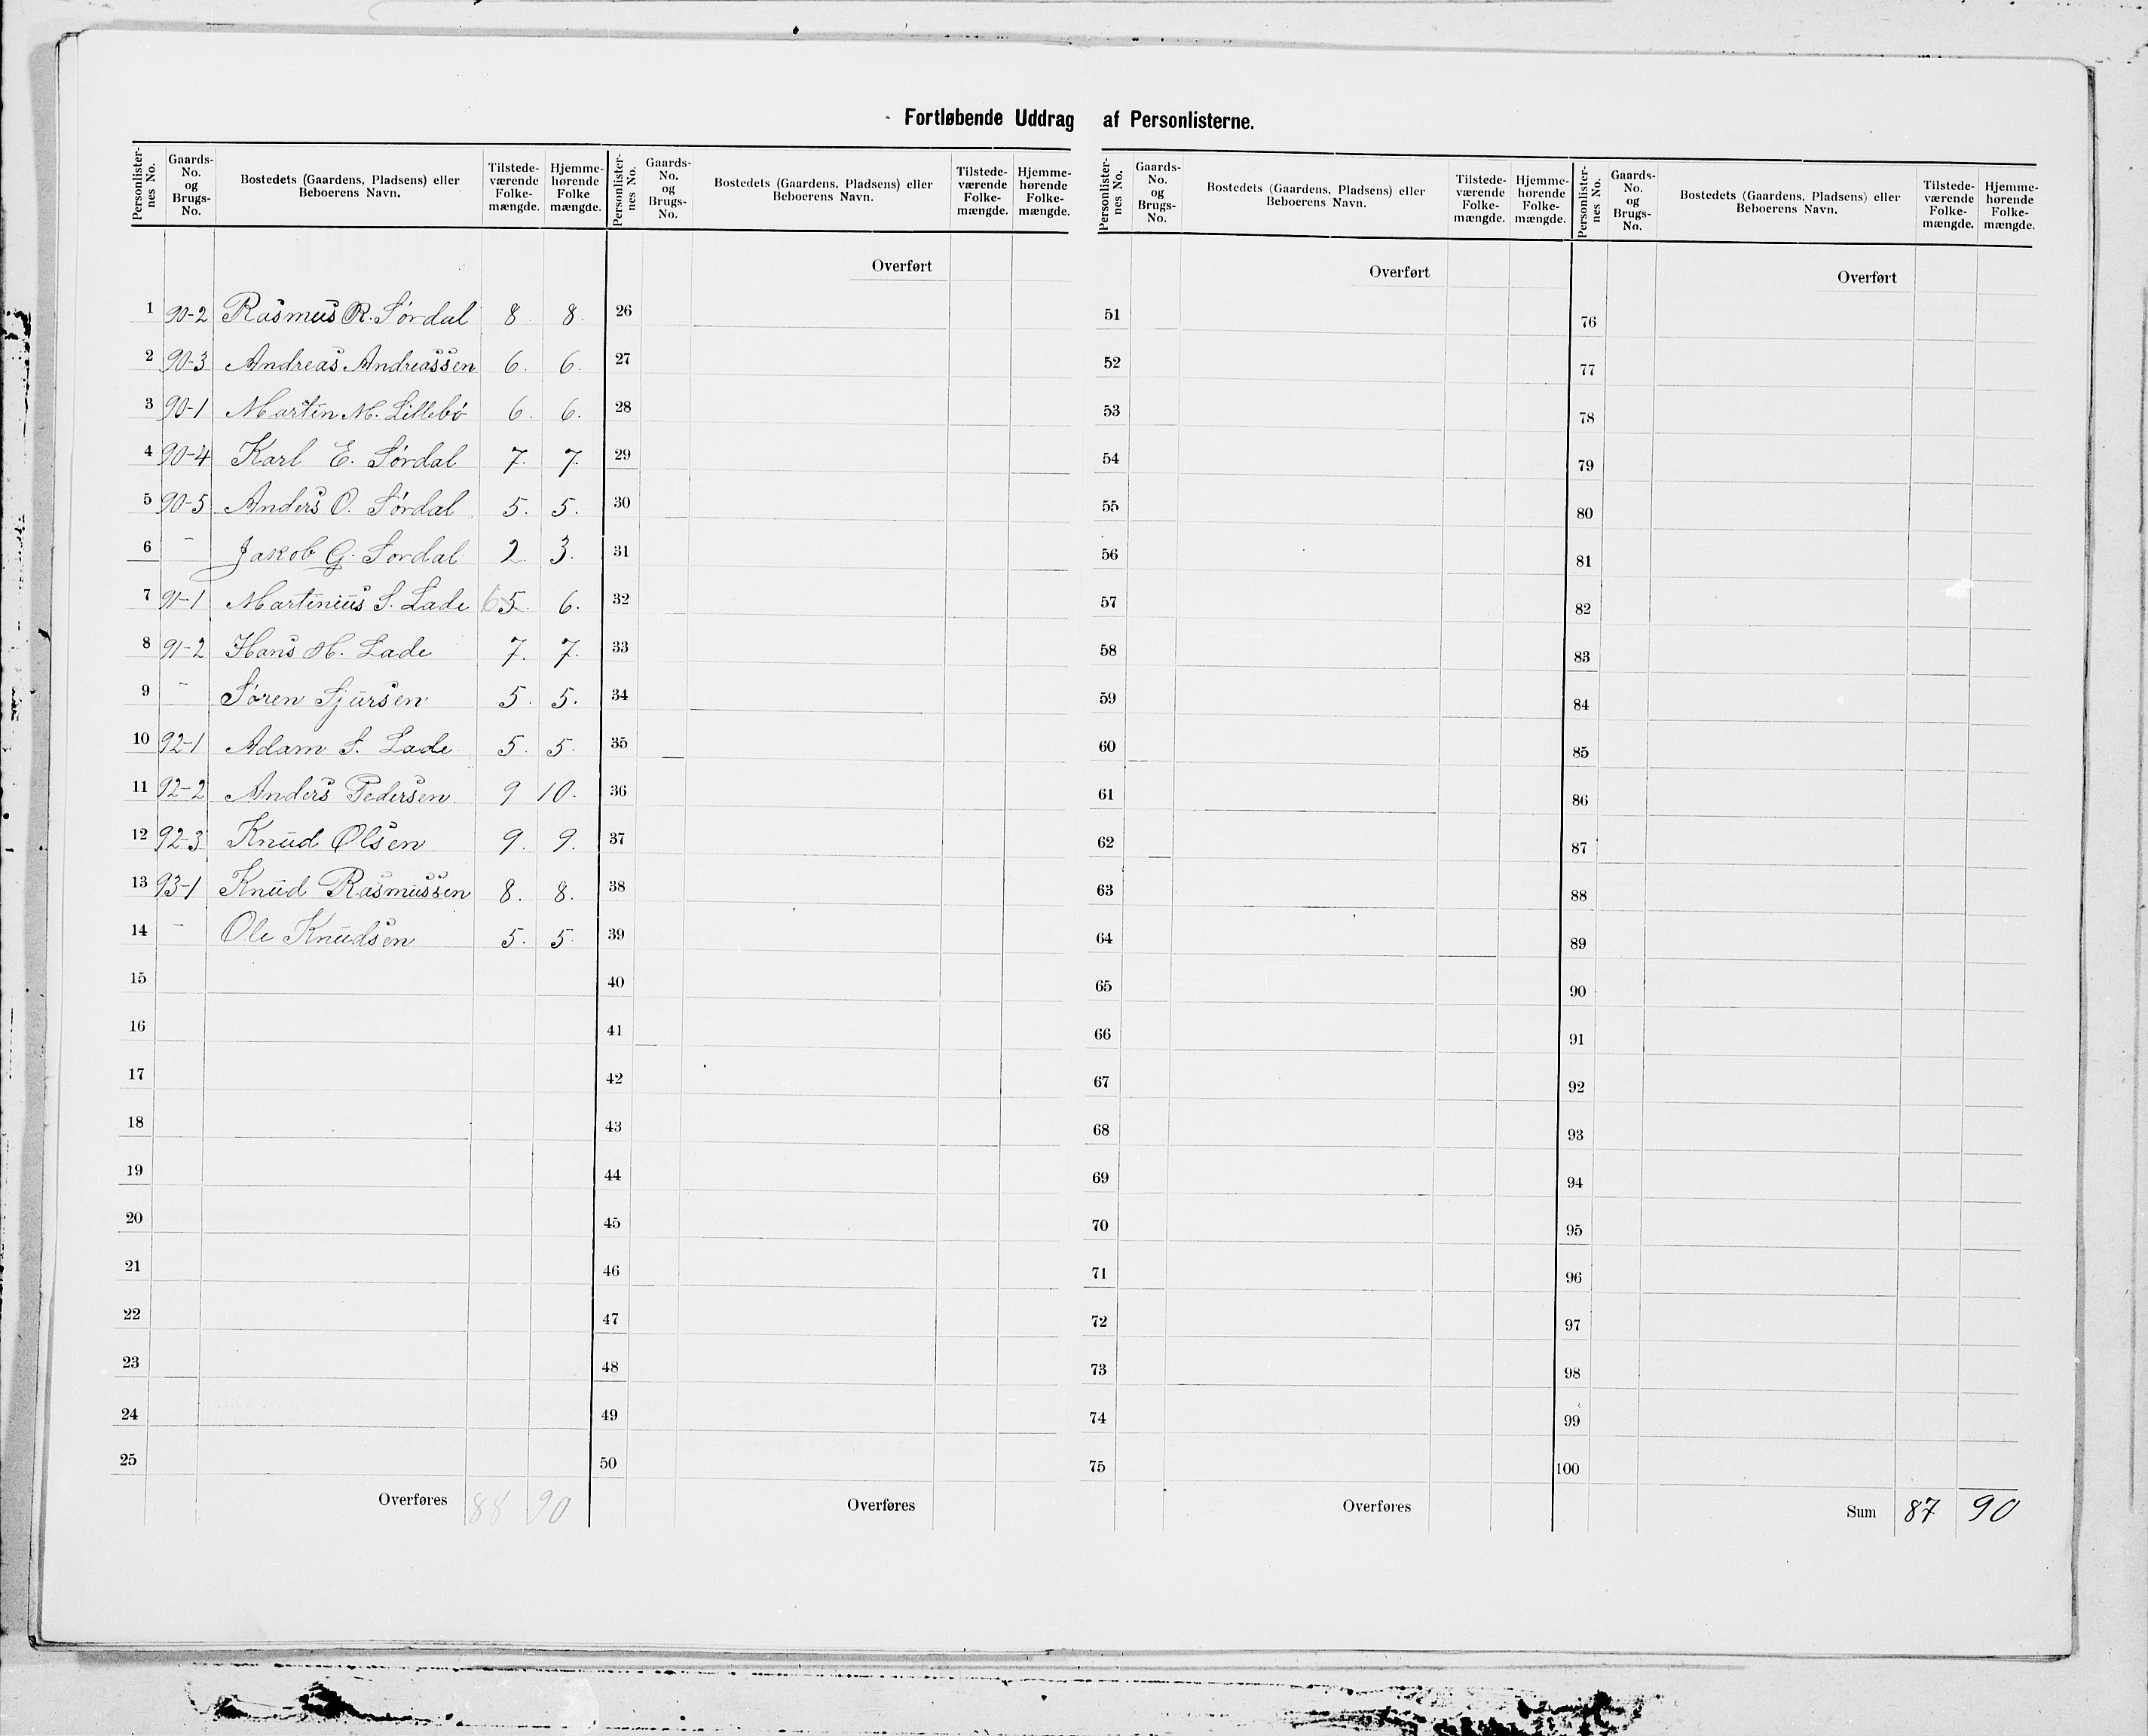 Fortløbende Uddrag af Personlisterne.
Personlister-nes No. Gaards-No. og Brugs-No. Bostedets (Gaardens, Pladsens) eller Beboerens Navn. Tilstede-værende Folke-mængde. Hjemme-hørende Folke mængde. Personlister-nes No. Gaards-No. og Brugs-No. Bostedets (Gaardens, Pladsens) eller Beboerens Navn. Tilstede-værende Folke-mængde. Hjemme-hørende Folke-mængde. Personlister-nes No. Gaards-No. og Brugs-No. Bostedets (Gaardens, Pladsens) eller Beboerens Navn. Tilstede-værende Folke-mængde. Hjemme-hørende Folke-mængde. Personlister-nes No. Gaards-No. og Brugs-No. Bostedets (Gaardens, Pladsens) eller Beboerens Navn. Tilstede-værende Folke-mængde. Hjemme-hørende Folke-mængde.
Overført Overført Overført
1 90-2 Rasmus R. Sørdal 8 8. 26 51 76
2 90-3 Andreas Andreassen 6. 6. 27 52 77
3 90-1 Martin M. Lillebø 6. 6. 28 53 78
4 90-4 Karl E. Sørdal 7. 7. 29 54 79
5 90-5 Anders O. Sørdal 5. 5. 30 55 80
6 - Jakob G. Sørdal 2. 3. 31 56 81
7 91-1 Martinius S. Lade 6 5. 6. 32 57 82
8 91-2 Hans M. Lade 7. 7. 33 58 83
9 - Søren Sjursen 5. 5. 34 59 84
10 92-1 Adam S. Lade 5. 5. 35 60 85
11 92-2 Anders Pedersen. 9 10. 36 61 86
12 92-3 Knud Olsen 9. 9. 37 62 87
13 93-1 Knud Rasmussen 8. 8. 38 63 88
14 - Ole Knudsen 5. 5. 39 64 89
15 40 65 90
16 41 66 91
17 42 67 92
18 43 68 93
19 44 69 94
20 45 70 95
21 46 71 96
22 47 72 97
23 48 73 98
24 49 74 99
25 50 75 100
Overføres 88 90 Overføres Overføres Sum 87 90